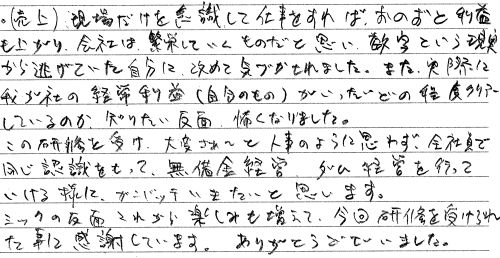 ・(売上)、現場だけを意識して仕事をすれば、おのずと利益
も上がり、会社は、繁栄していくものだと思い、数字という現実
から逃げていた自分に、改めて気づかされました。また、実際に
我が社の経常利益(自分のもの)がいったいどの程度クリアー
しているのか、知りたい反面、怖くなりました。
この研修を受け、大変だ〜と人事のように思わず、会社員で
同じ認識をもって、無借金経営、ダム経営を行って
いける様に、ガンバッテいきたいと思います。
ショックの反面これから楽しみも増えて、今回研修を受けられ
た事に感謝しています。ありがとうございました。